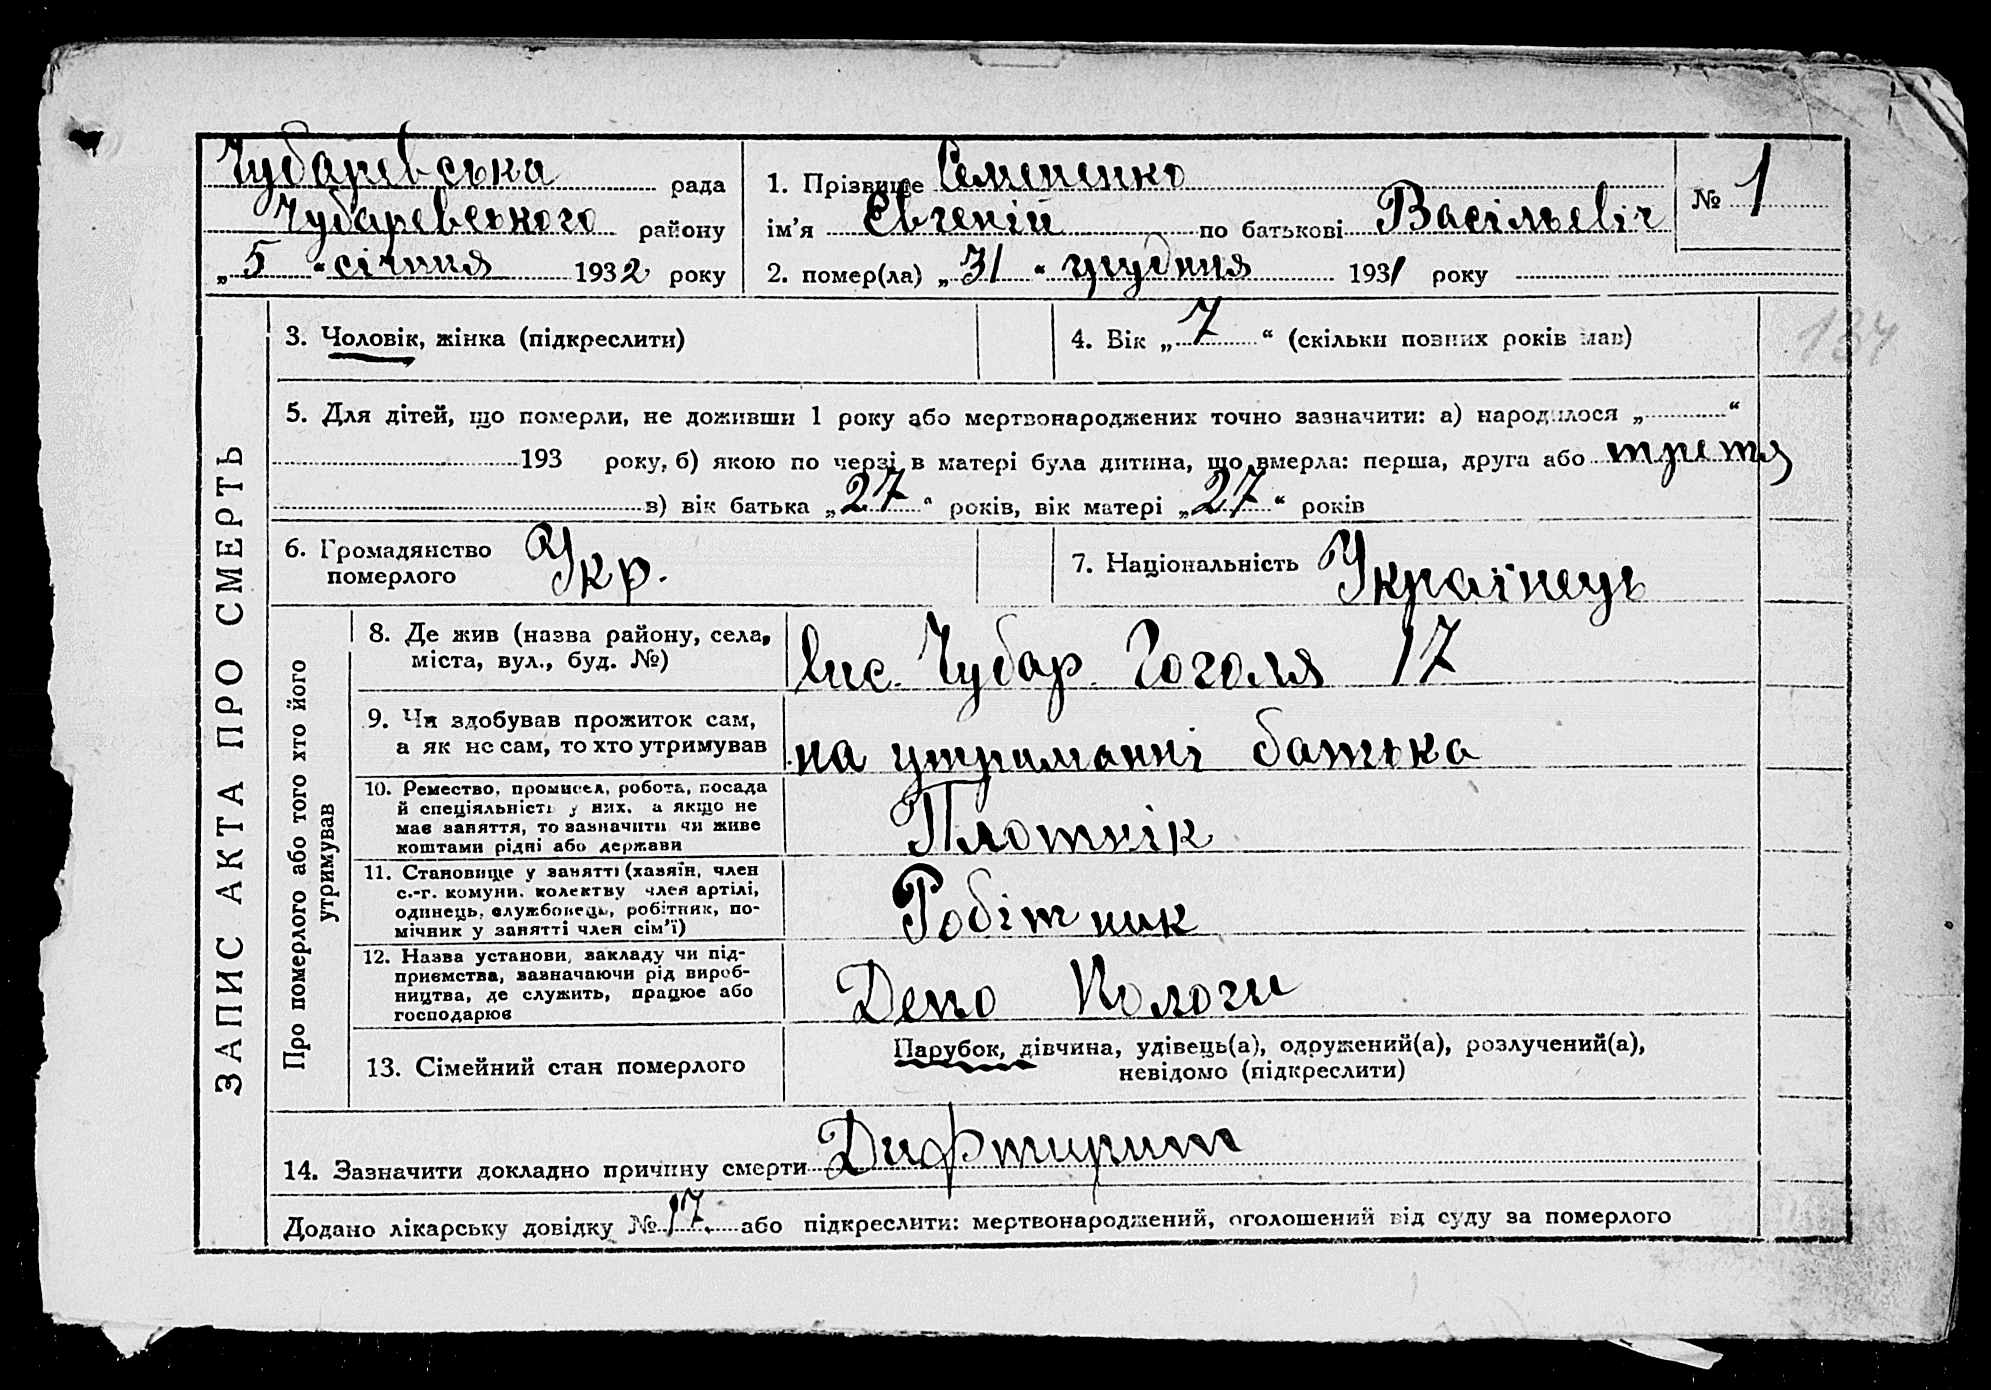 Чубаревська рада
Чубаревського району
„ 5 “ січня 1932 року
1. Прізвище Семененко
ім’я Евгеній по батькові Васільевіч
2. помер(ла) „ 31 “ грудня 1931 року
№ 1
134
ЗАПИС АКТА ПРО СМЕРТЬ
3. Чоловік, жінка (підкреслити)
4. Вік „ 7 “ (скільки повних років мав)
5. Для дітей, що померли, не доживши 1 року або мертвонароджених точно зазначити: а) народилося „ “
193 року, б) якою по черзі в матері була дитина, що вмерла: перша, друга або третя
в) вік батька „ 27 “ років, вік матері „ 27 “ років
6. Громадянство
померлого
Укр.
7. Національність Українець
Про померлого або того хто його
утримував
8. Де жив (назва району, села,
міста, вул., буд. №)
вис. Чубар. Гоголя 17
9. Чи здобував прожиток сам,
а як не сам, то хто утримував
на утриманні батька
10. Ремество, промисел, робота, посада
й спеціяльність у них, а якщо не
має заняття, то зазначити чи живе
коштами рідні або держави
Плотнік
11. Становище у занятті (хазяїн, член
с.-г. комуни, колектву член артілі,
одинець, службовець, робітник, по-
мічник у занятті член сім’ї)
Робітник
12. Назва установи, закладу чи під-
приємства, зазначаючи рід вироб-
ництва, де служить, працює або
господарює
Депо Пологи
13. Сімейний стан померлого
Парубок, дівчина, удівець(а), одружений(а), розлучений(а),
невідомо (підкреслити)
14. Зазначити докладно причину смерти Дифтирит
Додано лікарську довідку № 17. або підкреслити: мертвонароджений, оголошений від суду за померлого